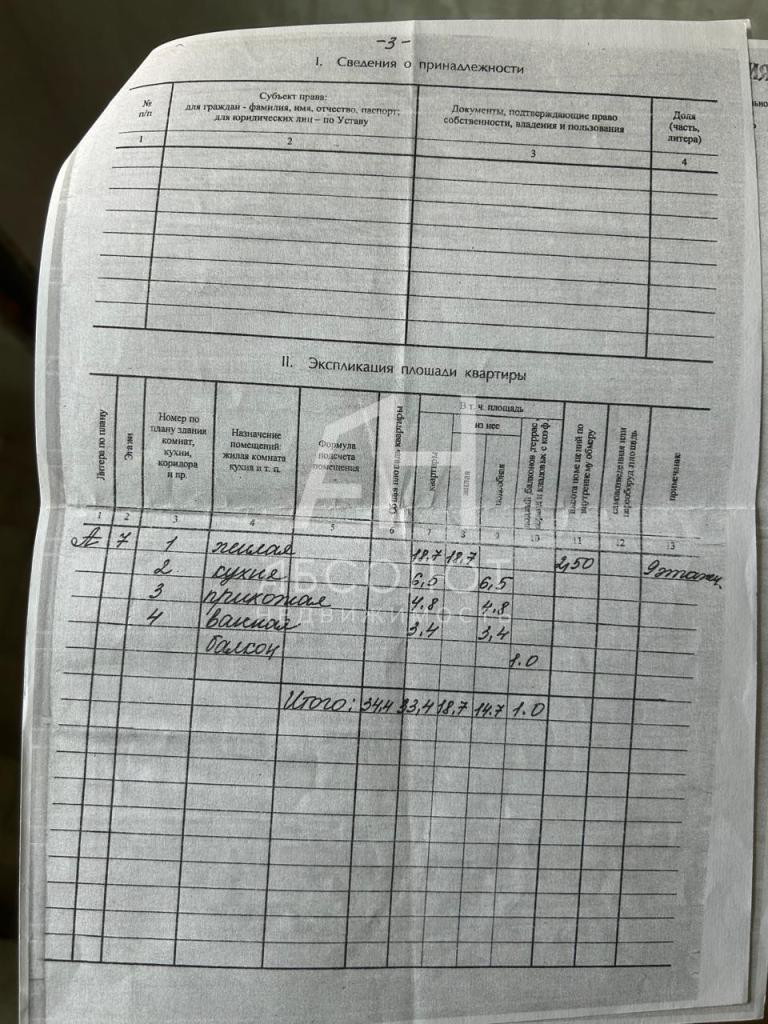 -3-
I. Сведения о принадлежности
№ п/п
Субъект права:
для граждан - фамилия, имя, отчество, паспорт;
для юридических лиц – по Уставу
Документы, подтверждающие право
собственности, владения и пользования
Доля
(часть,
литера)
1 2 3 4
II. Экспликация площади квартиры
Литера по плану
Этажи
Номер по
плану здания
комнат,
кухни,
коридора
и пр.
Назначение
помещений:
жилая комната
кухня и т. п.
Формула
подсчета
помещения
Общая площадь квартиры
В т. ч. площадь
из нее
квартиры
жилая
подсобная
высота помещений по
внутреннему обмеру
самовозведенная или
переоборуд. площадь
примечание
1 2 3 4 5 6 7 8 9 10 11 12 13
А 7 1 жилая 18.7 18,7 2,50 9этажн.
2 кухня 6,5 6,5
3 прихожая 4.8 4.8
4 ванная 3,4 3,4
балкон 1.0
Итого: 34,4 33,4 18,7 14.7 1.0
АН
АБСОЛЮТ
НЕДВИЖИМОСТЬ